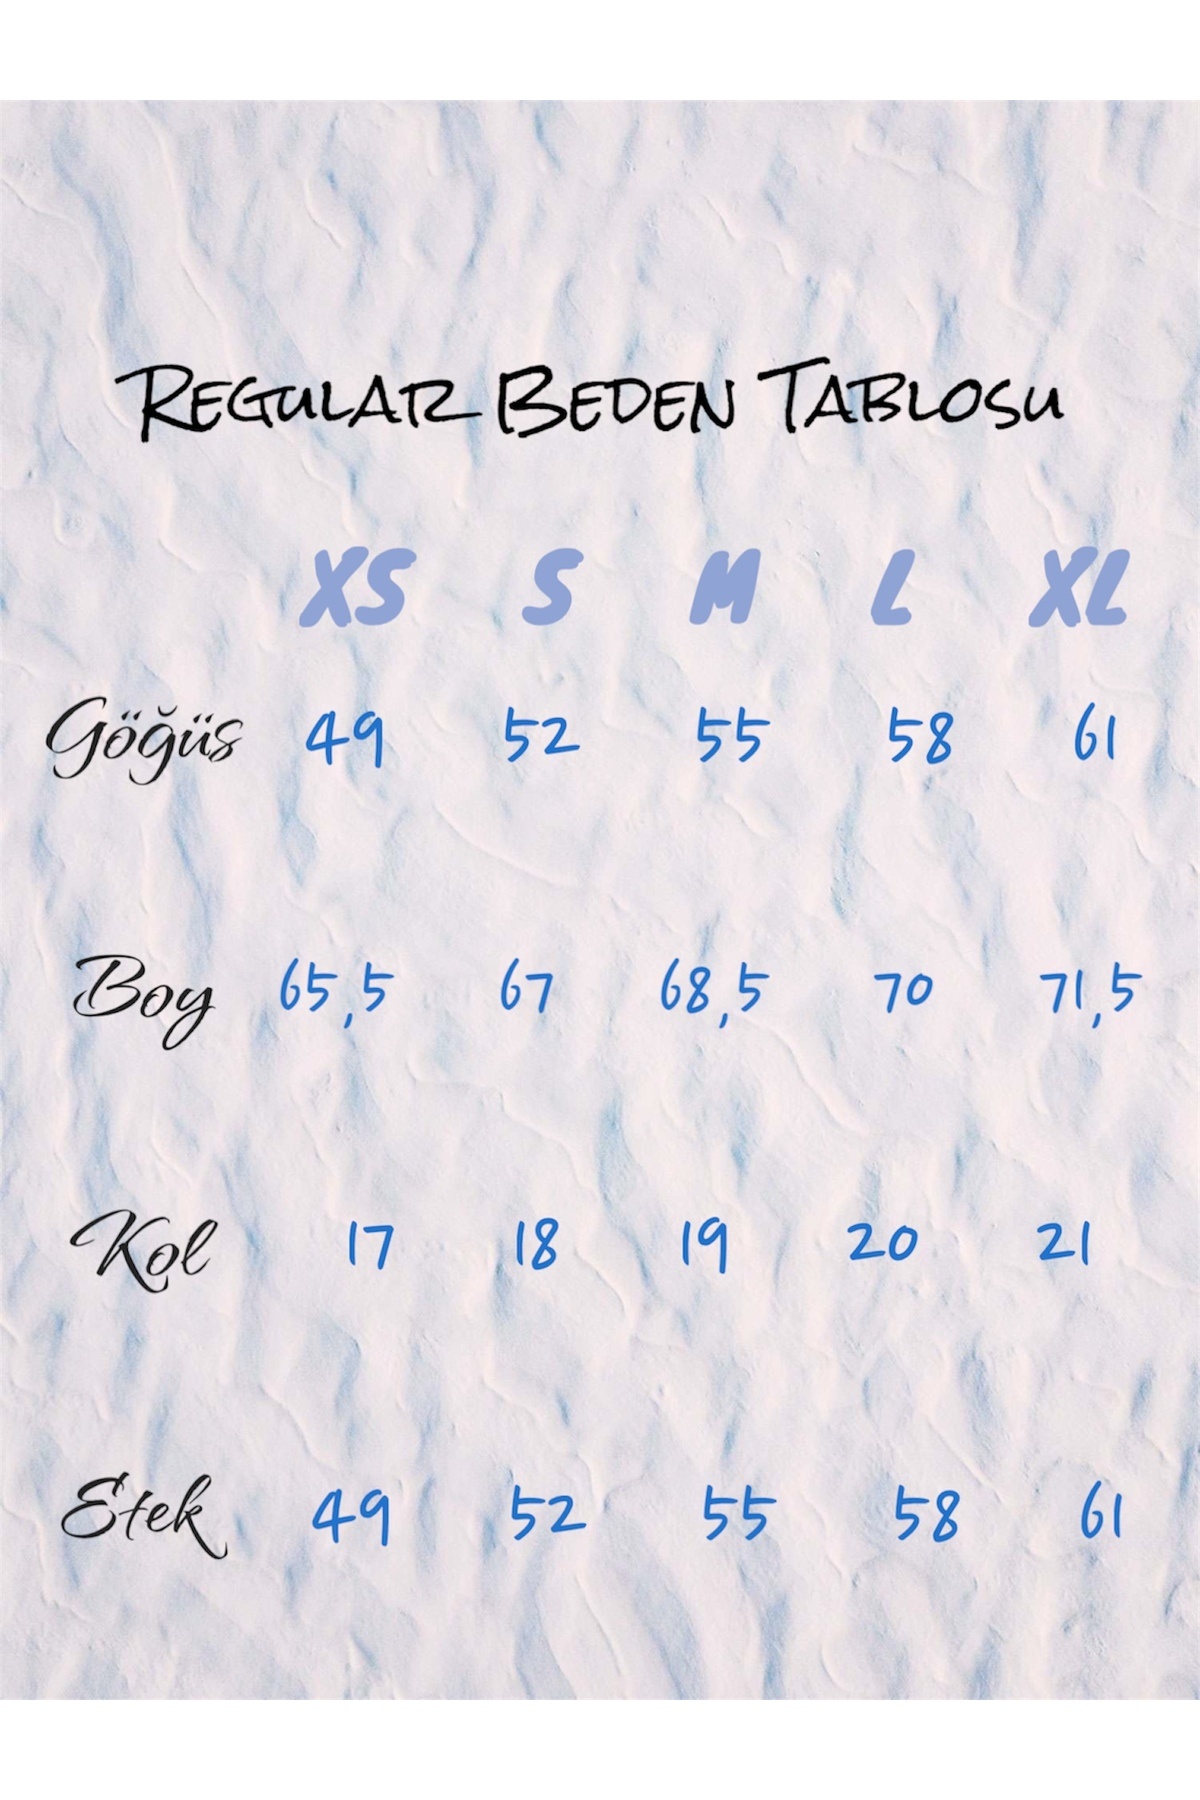 REGULAR BEDEN TABLOSU
XS S M L XL
Göğüs 49 52 55 58 61
Boy 65,5 67 68,5 70 71,5
Kol 17 18 19 20 21
Etek 49 52 55 58 61